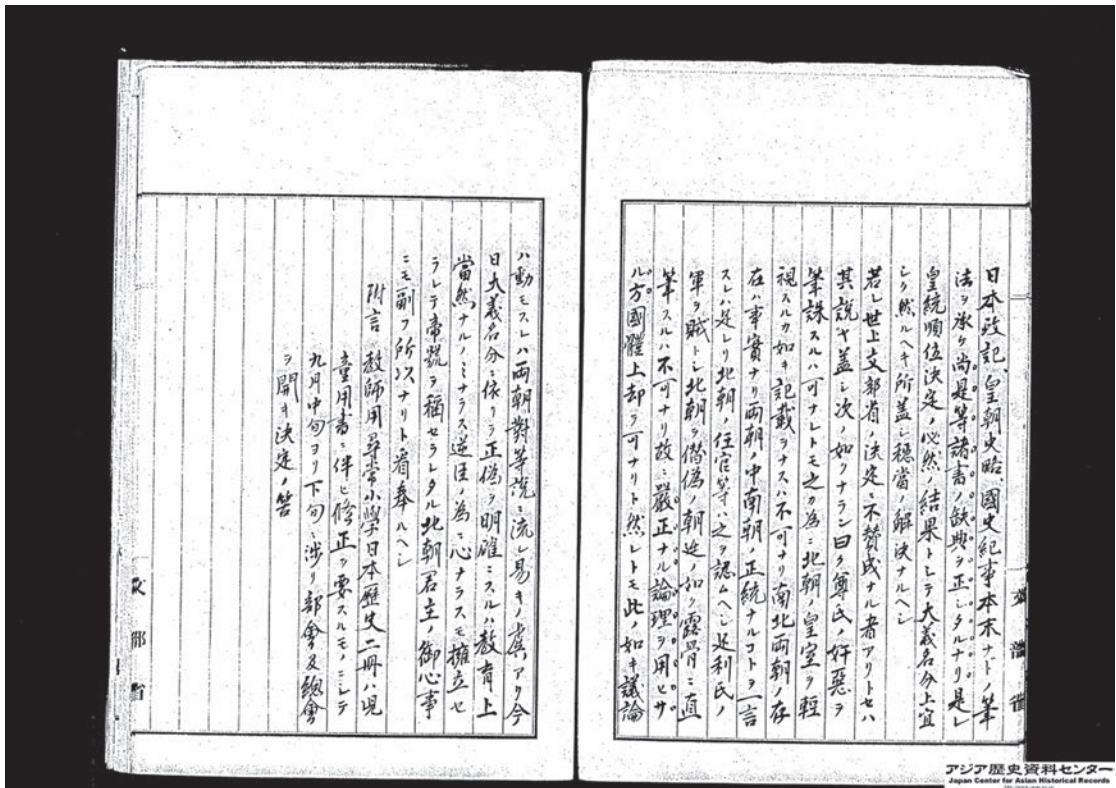 日本政記、皇朝史略、國史紀事本末ナトノ筆
法ヲ承ケ尚是等諸書ノ缺典ヲ正シタルナリ是レ
皇統順位決定ノ必然ノ結果トシテ大義名分上宜
シク然ルヘキ所蓋シ穏當ノ解決ナルヘシ
若シ世上文部省ノ決定ニ不賛成ナル者アリトセハ
其説ヤ蓋シ次ノ如クナラン曰ク尊氏ノ奸惡ヲ
筆誅スルハ可ナレトモ之カ為ニ北朝ノ皇室ヲ輕
視スルカ如キ記載ヲナスハ不可ナリ南北両朝ノ存
在ハ事實ナリ両朝ノ中南朝ノ正統ナルコトヲ一言
スレハ足レリ北朝ノ任官等ハ之ヲ認ムヘシ足利氏ノ
軍ヲ賊トシ北朝ヲ僭偽ノ朝廷ノ如ク露骨ニ直
筆スルハ不可ナリ故ニ嚴正ナル論理ヲ用ヒサ
ル方國體上却ラ可ナリト然レトモ此ノ如キ議論
文部省
ハ動モスレハ両朝對等説ニ流レ易キノ虞アリ今
日大義名分ニ依リテ正偽ヲ明確ニスルハ教育上
當然ナルノミナラス逆臣ノ為ニ心ナラスモ擁立セ
ラレテ帝號ヲ稱セラレタル北朝君主ノ御心事
ニモ副フ所以ナリト着奉ルヘシ
附言 教師用尋常小學日本歴史二冊ハ児
童用書ニ伴ヒ修正ヲ要スルモノニシテ
九月中旬ヨリ下旬ニ渉リ部會及総會
ヲ開キ決定ノ筈
文部省
アジア歴史資料センター
Japan Center for Asian Historical Records